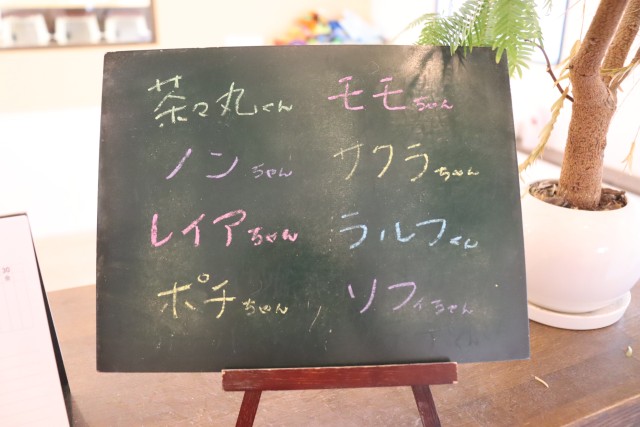 茶々丸くん モモちゃん
ノンちゃん サクラちゃん
レイアちゃん ラルフくん
ポチちゃん ソフィちゃん